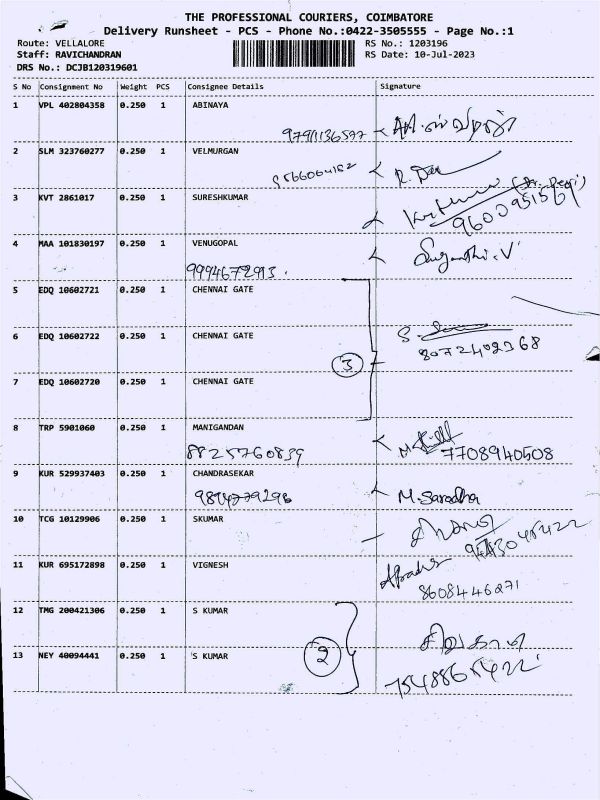 THE PROFESSIONAL COURIERS, COIMBATORE
Delivery Runsheet - PCS - Phone No.:0422-3505555 - Page No.:1
Route: VELLALORE
RS No.: 1203196
Staff: RAVICHANDRAN
RS Date: 10-Jul-2023
DRS No.: DCJB120319601
S No Consignment No Weight PCS Consignee Details Signature
1 VPL 402804358 0.250 1 ABINAYA
2 SLM 323760277 0.250 1 VELMURGAN
3 KVT 2861017 0.250 1 SURESHKUMAR
9600951569
4 MAA 101830197 0.250 1 VENUGOPAL Suganthi.V
9994672913.
5 EDQ 10602721 0.250 1 CHENNAI GATE
6 EDQ 10602722 0.250 1 CHENNAI GATE
3 8072402368
7 EDQ 10602720 0.250 1 CHENNAI GATE
8 TRP 5901060 0.250 1 MANIGANDAN
8825760839 7708940508
9 KUR 529937403 0.250 1 CHANDRASEKAR
9894779296 M.Saradha
10 TCG 10129906 0.250 1 SKUMAR
11 KUR 695172898 0.250 1 VIGNESH
8608446271
12 TMG 200421306 0.250 1 S KUMAR
13 NEY 40094441 0.250 1 S KUMAR 2